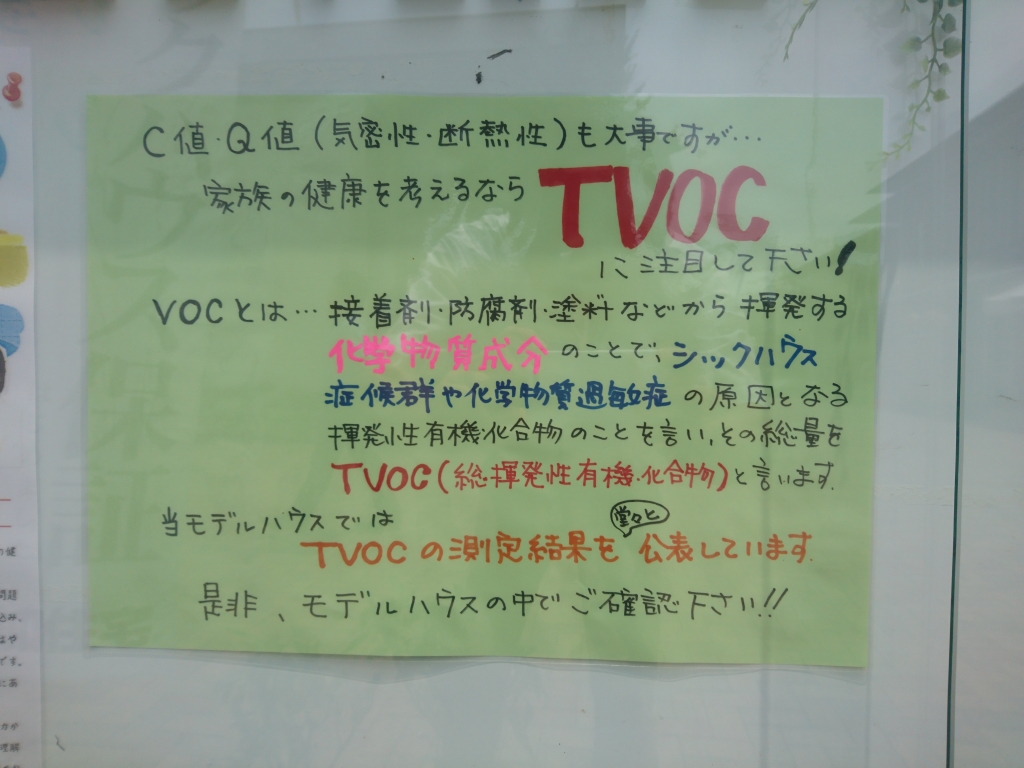 C値・Q値(気密性・断熱性)も大事ですが…
家族の健康を考えるなら TVOC
に注目して下さい!
VOCとは…接着剤・防腐剤・塗料などから揮発する
化学物質成分のことで、シックハウス
症候群や化学物質過敏症の原因となる
揮発性有機化合物のことを言い、その総量を
TVOC(総揮発性有機化合物)と言います。
当モデルハウスでは
堂々と
TVOCの測定結果を公表しています。
是非、モデルハウスの中でご確認下さい!!
の健
問題
込み、
はや
です。
にあ
カや
理解